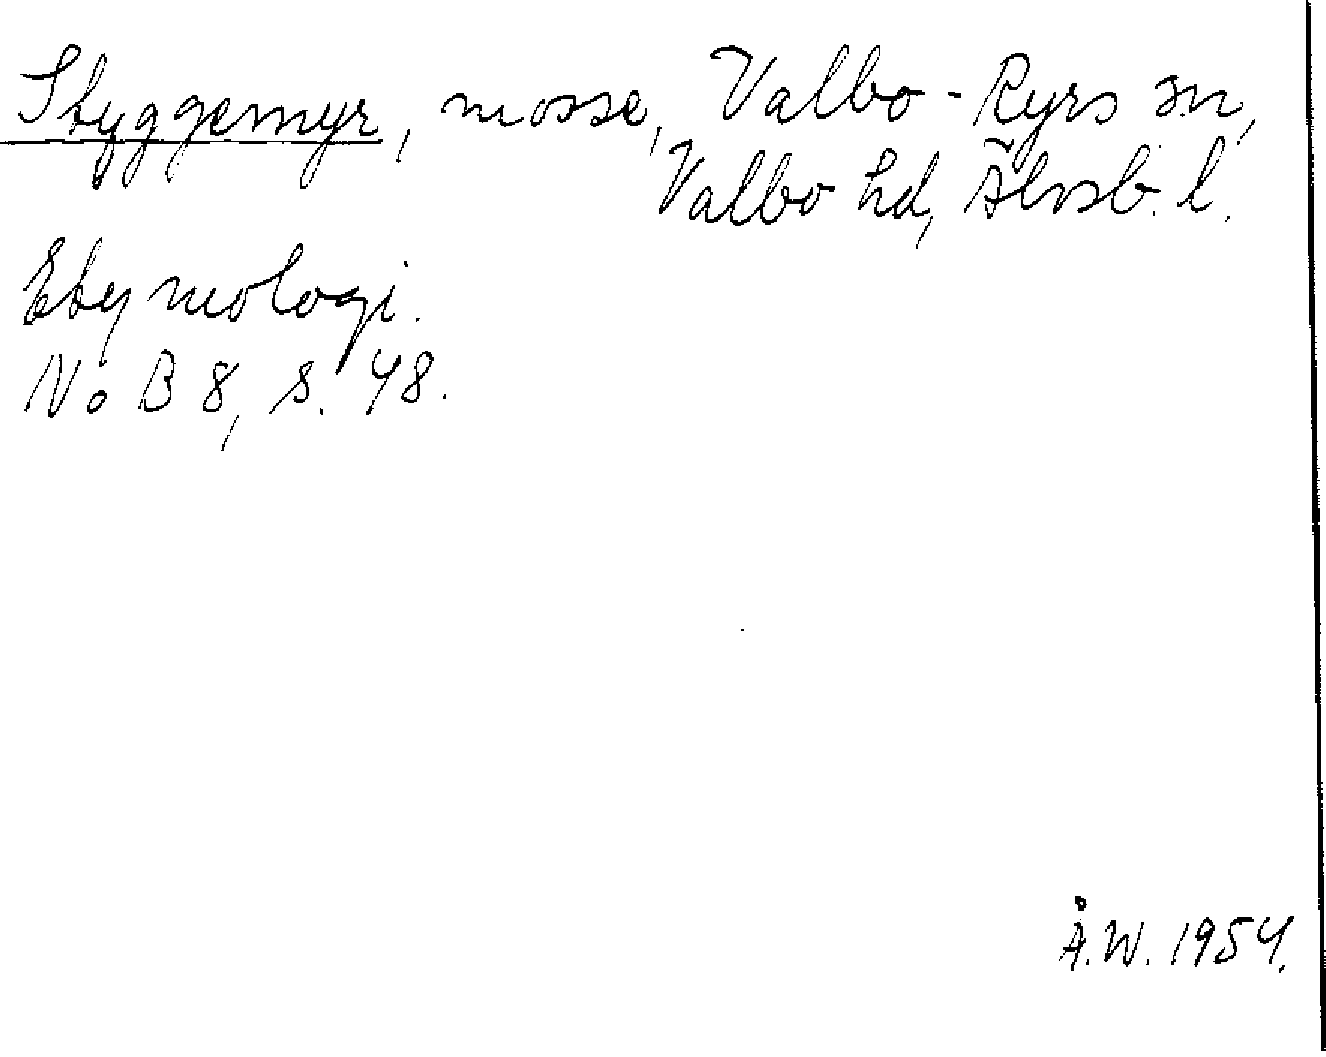 Styggemyr, mosse, Valbo-Ryrs sn,
Valbo hd, Älvsb. l.
Etymologi.
NoB 8, s. 48.
Å.W. 1954.